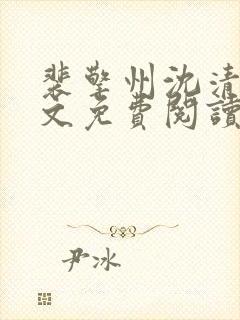 裴擎州沈清
文免費閱讀
尹冰